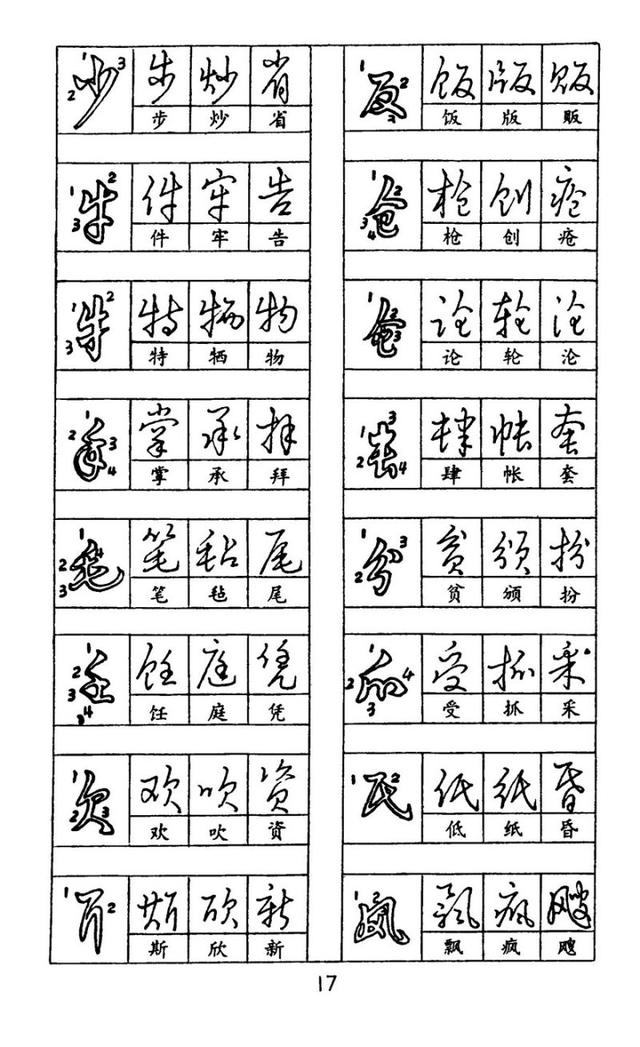 少 步 炒 省
步 炒 省
牛 件 牢 告
件 牢 告
牜 特 牺 物
特 牺 物
手 掌 承 拜
掌 承 拜
毛 笔 毡 尾
笔 毡 尾
壬 饪 庭 凭
饪 庭 凭
欠 欢 吹 资
欢 吹 资
斤 斯 欣 新
斯 欣 新
反 饭 版 贩
饭 版 贩
仓 枪 创 疮
枪 创 疮
仑 论 轮 沦
论 轮 沦
肆 帐 套
肆 帐 套
分 贫 颁 扮
贫 颁 扮
爪 受 抓 采
受 抓 采
氏 低 纸 昏
低 纸 昏
风 飘 疯 飕
飘 疯 飕
17